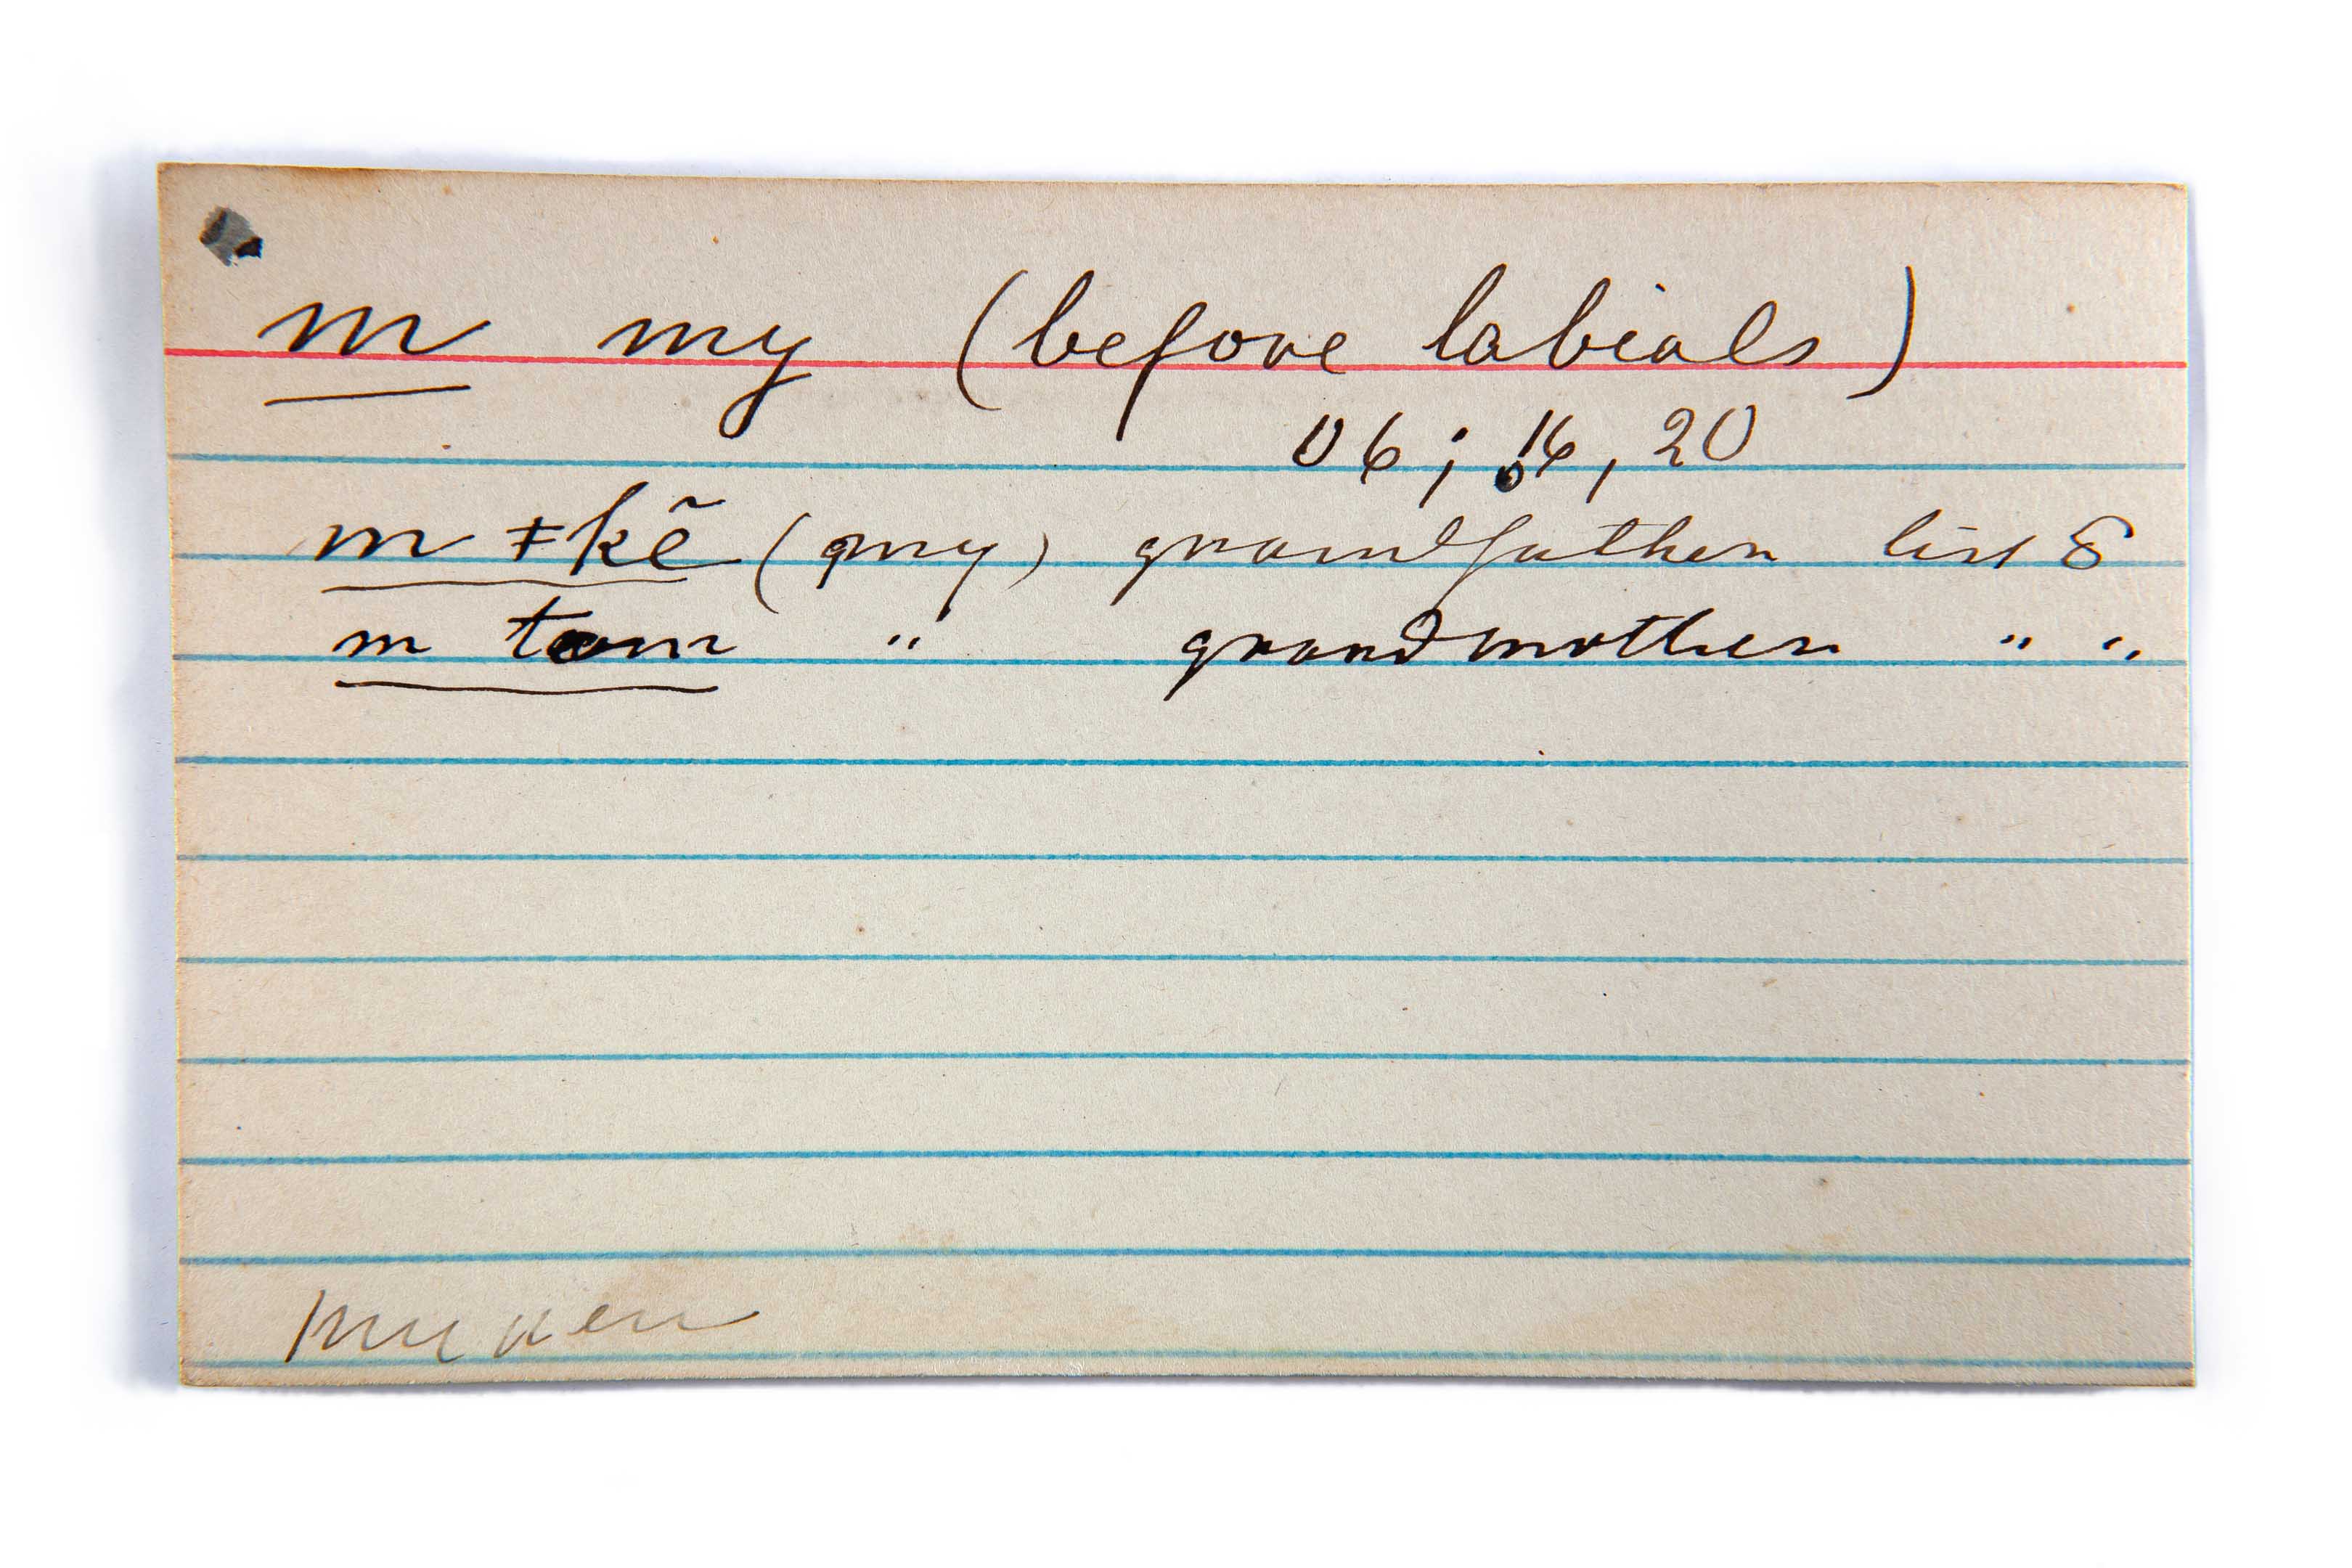 m my (before labials)
06; 16, 20
m ǂkẽ (my) grandfather list 8
m tom " grandmother " "